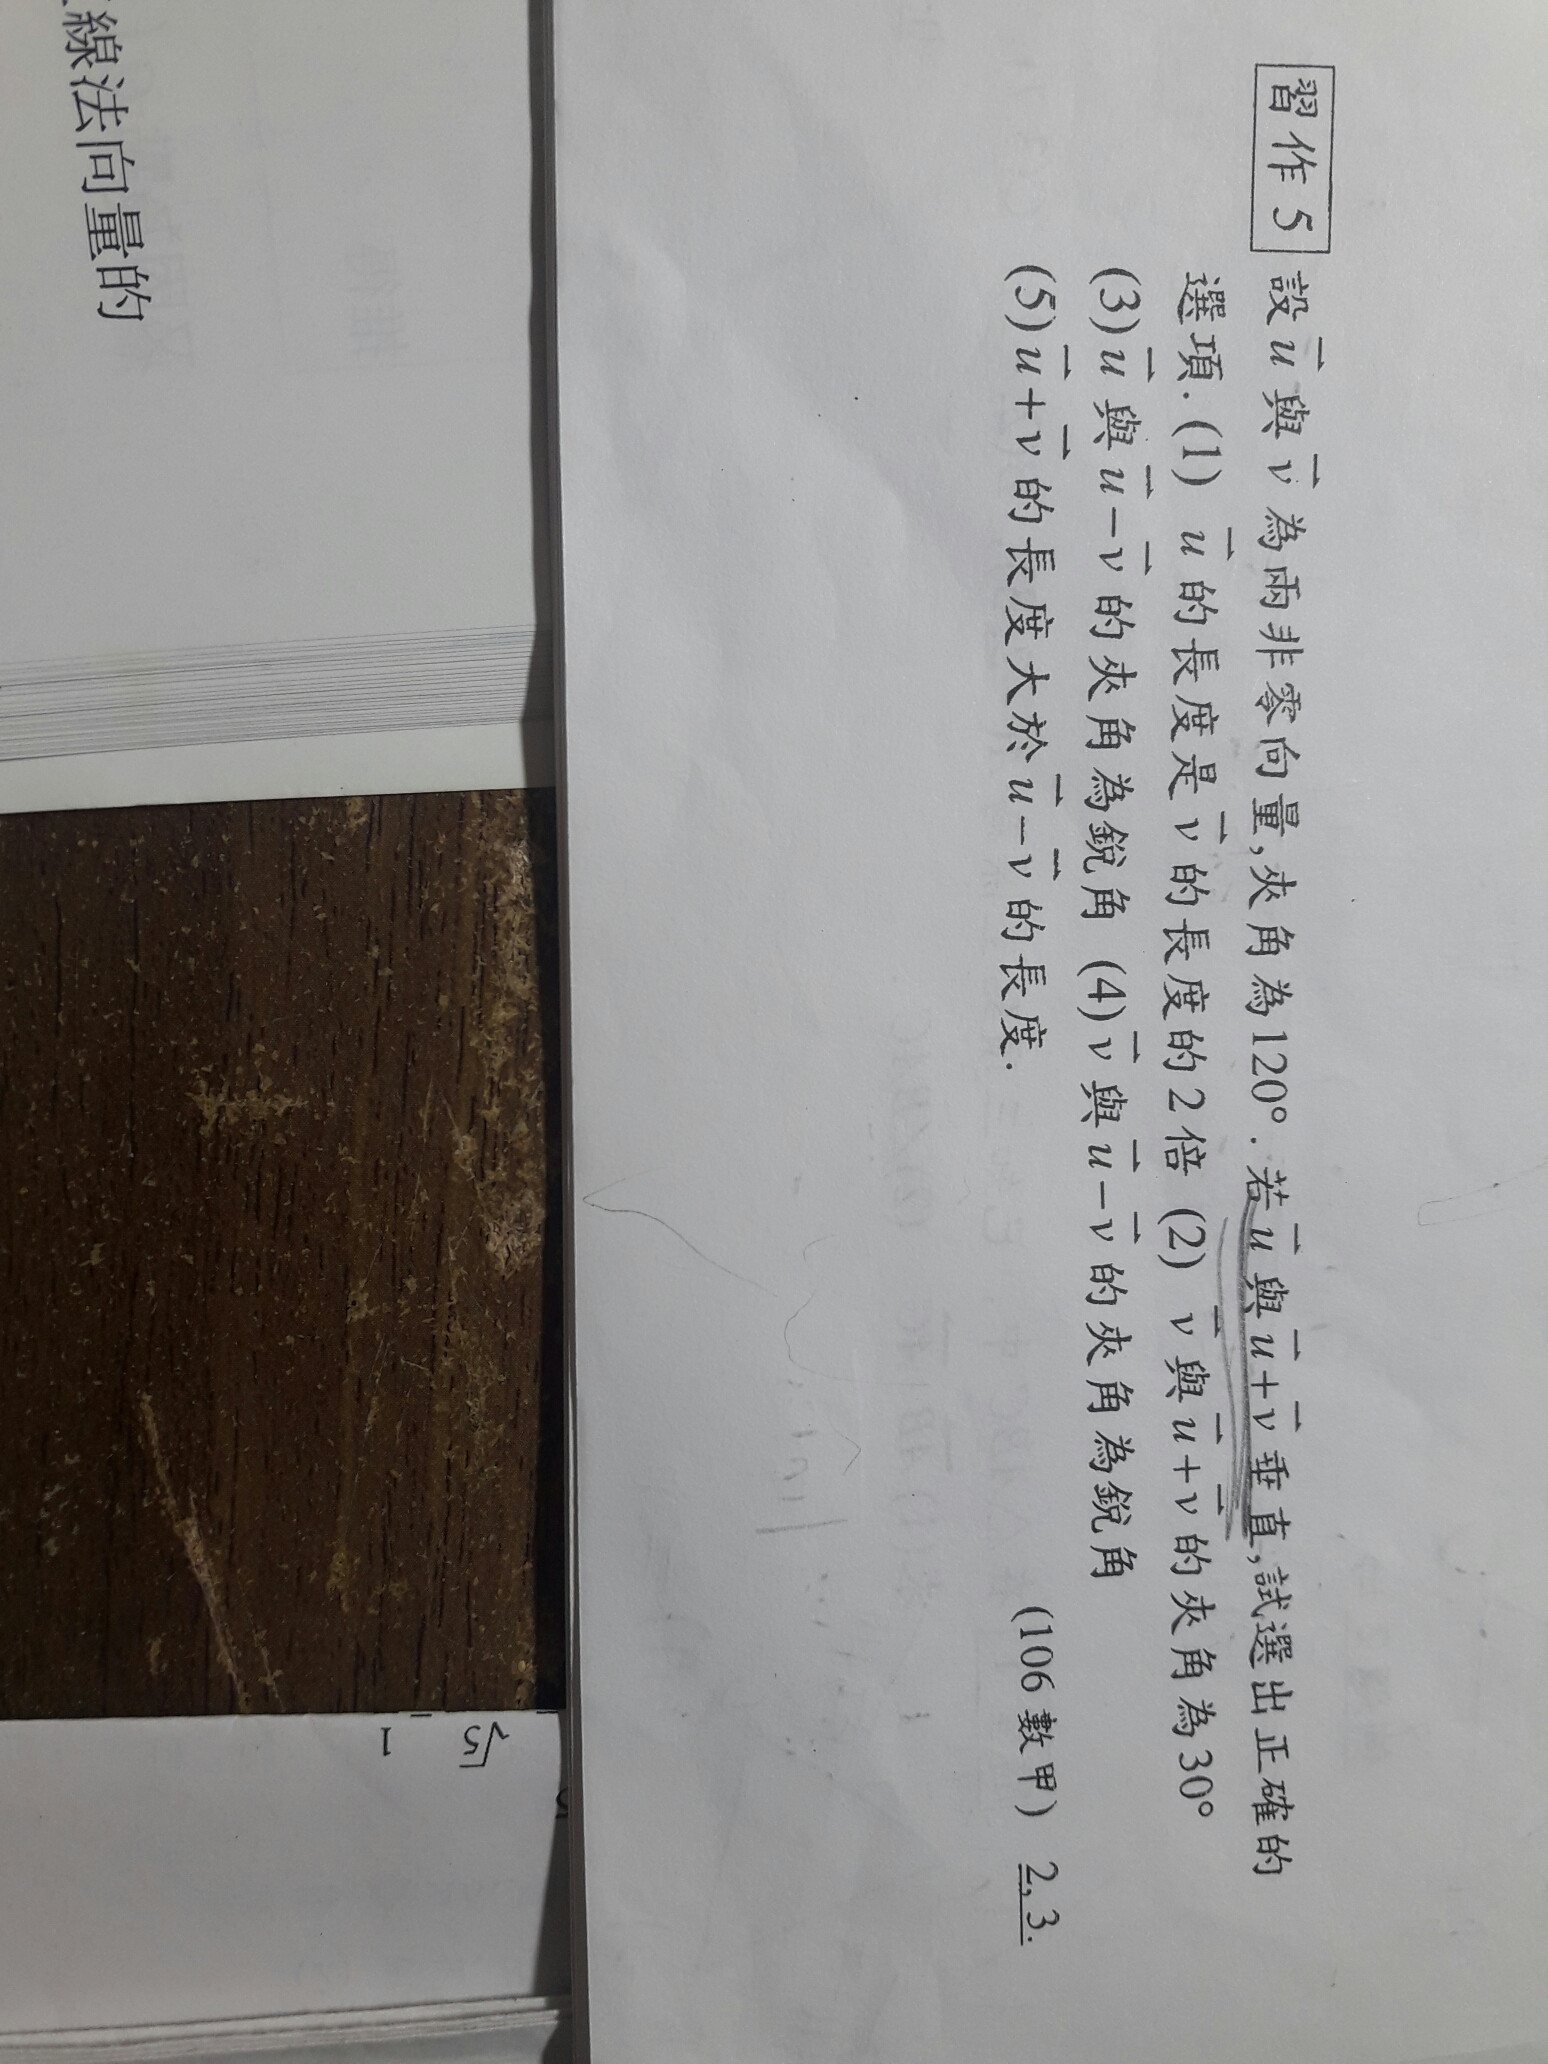 習作5 設 u⃗ 與 v⃗ 為兩非零向量,夾角為120°. 若 u⃗ 與 u⃗+v⃗ 垂直,試選出正確的
選項. (1) u⃗ 的長度是 v⃗ 的長度的2倍 (2) v⃗ 與 u⃗+v⃗ 的夾角為30°
(3) u⃗ 與 u⃗−v⃗ 的夾角為銳角 (4) v⃗ 與 u⃗−v⃗ 的夾角為銳角
(5) u⃗+v⃗ 的長度大於 u⃗−v⃗ 的長度. (106數甲) 2,3.
線法向量的
√5
1